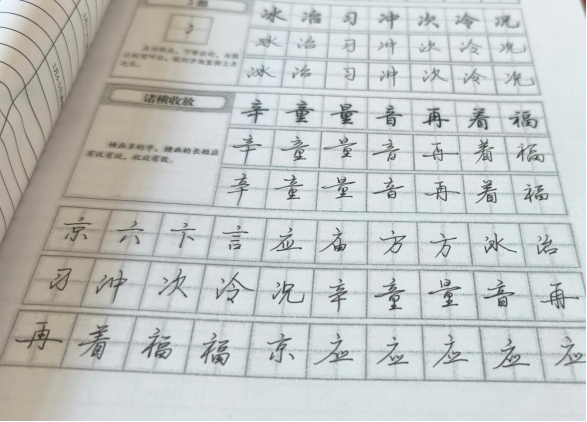 冰 冶 习 冲 次 冷 况
冰 冶 习 冲 次 冷 况
冰 冶 习 冲 次 冷 况
诸横收放
辛 童 量 音 再 着 福
横画多的字，横画的长短应有收有放，收放有致。
辛 童 量 音 再 着 福
辛 童 量 音 再 着 福
京 六 卞 言 应 庙 方 方 冰 冶
习 冲 次 冷 况 辛 童 量 音 再
再 着 福 福 京 应 应 应 应 应